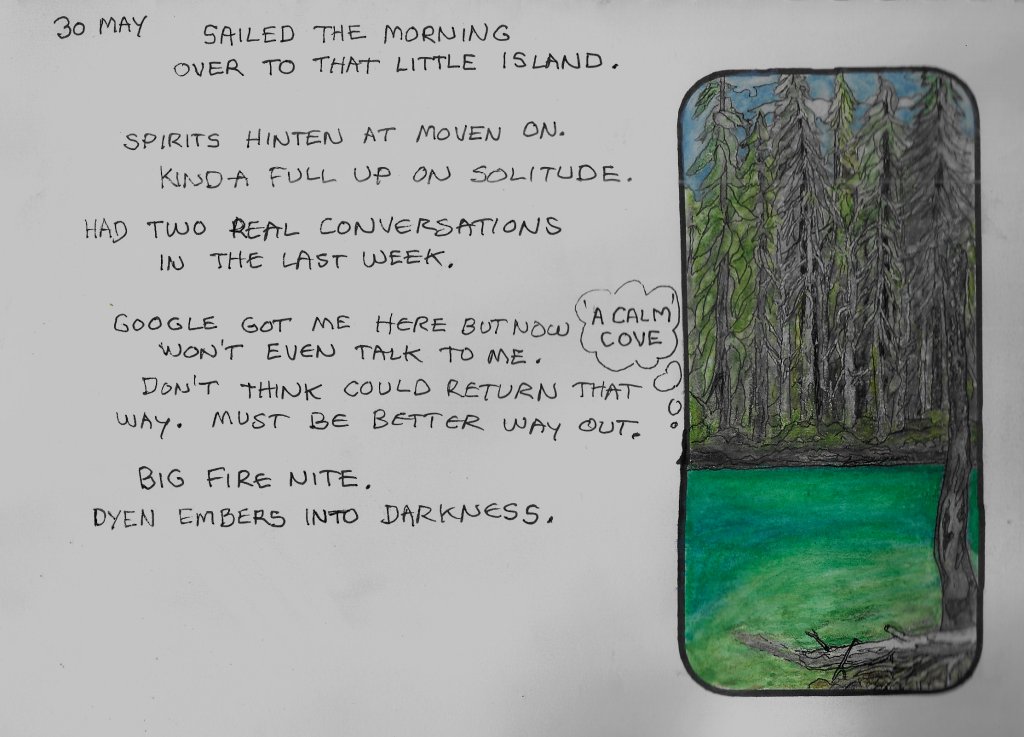 30 MAY
SAILED THE MORNING
OVER TO THAT LITTLE ISLAND.
SPIRITS HINTEN AT MOVEN ON.
KINDA FULL UP ON SOLITUDE.
HAD TWO REAL CONVERSATIONS
IN THE LAST WEEK.
GOOGLE GOT ME HERE BUT NOW
WON'T EVEN TALK TO ME.
DON'T THINK COULD RETURN THAT
WAY. MUST BE BETTER WAY OUT.
BIG FIRE NITE.
DYEN EMBERS INTO DARKNESS.
'A CALM'
COVE